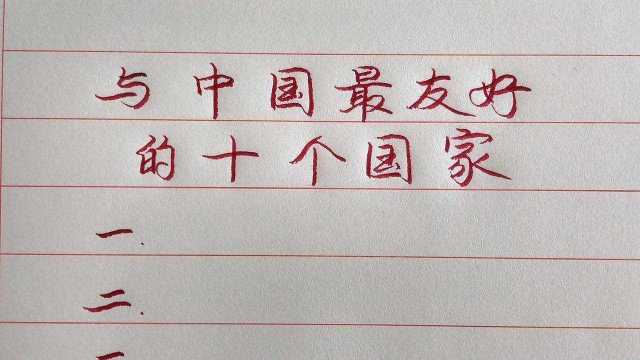 与中国最友好
的十个国家
一.
二.